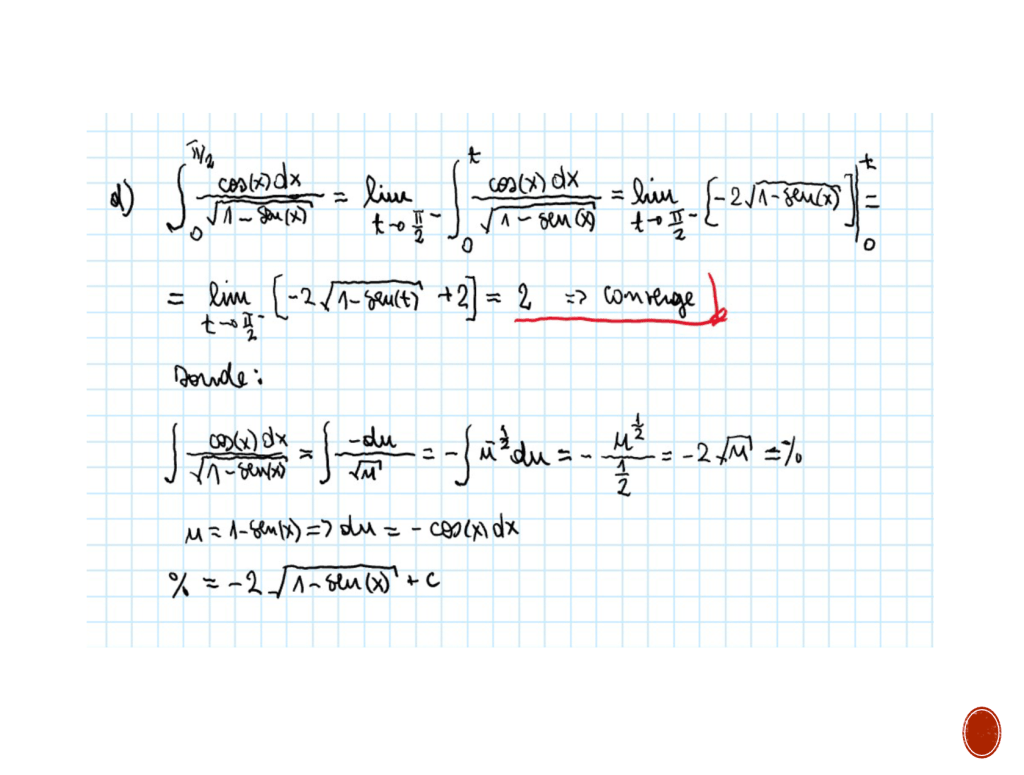 d) ∫₀^{π/2} cos(x) dx / √(1 - sen(x)) = lim_{t→π/2⁻} ∫₀^t cos(x) dx / √(1 - sen(x)) = lim_{t→π/2⁻} [-2 √(1 - sen(x))] |₀^t =
= lim_{t→π/2⁻} [-2 √(1 - sen(t)) + 2] = 2 => converge
Donde:
∫ cos(x) dx / √(1 - sen(x)) = ∫ -du / √u = - ∫ u^{-1/2} du = - u^{1/2} / (1/2) = -2 √u = %
u = 1 - sen(x) => du = - cos(x) dx
% = -2 √(1 - sen(x)) + c